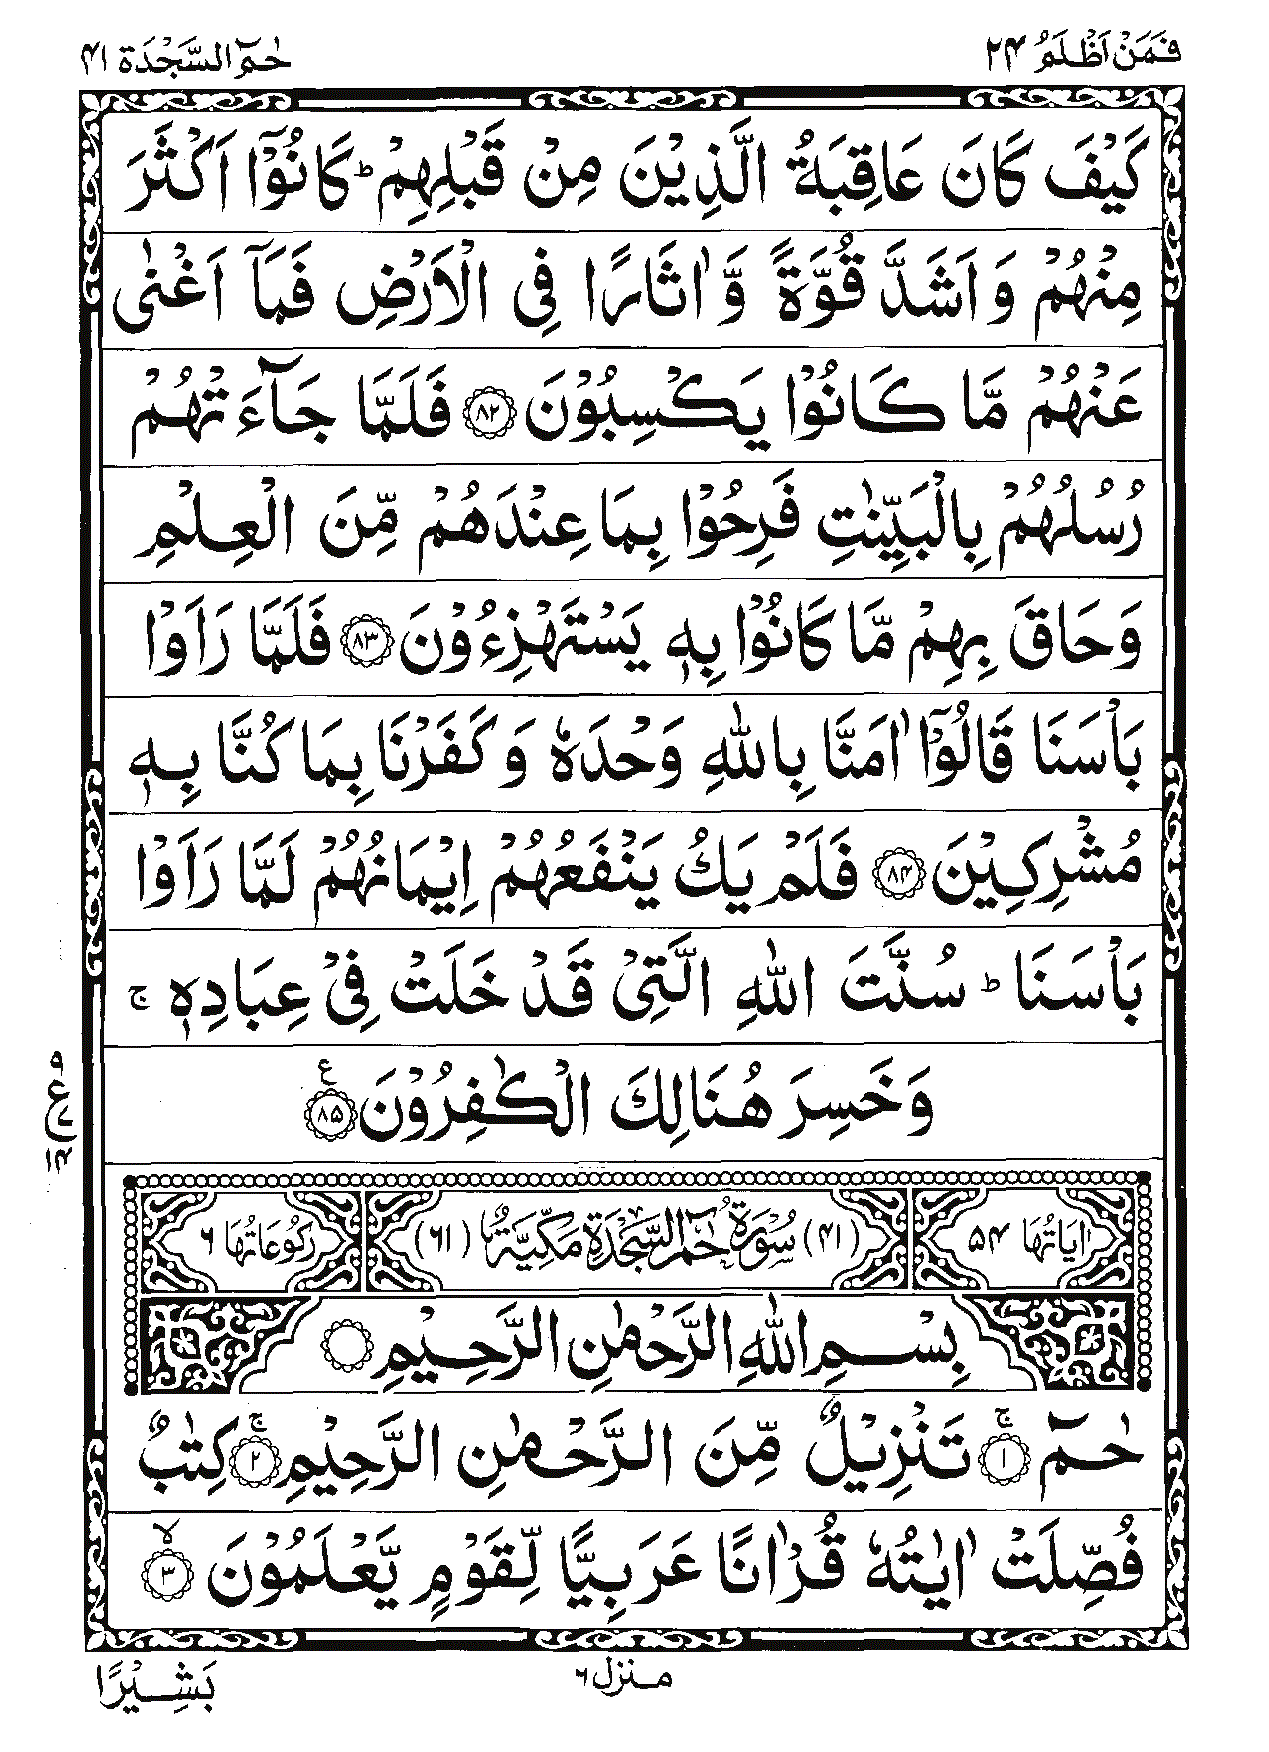 فَمَنْ اَظْلَمُ ۲۴
حٰمٓ السَّجْدَة ۴۱
كَيْفَ كَانَ عَاقِبَةُ الَّذِيْنَ مِنْ قَبْلِهِمْ ؕ كَانُوْۤا اَكْثَرَ
مِنْهُمْ وَ اَشَدَّ قُوَّةً وَّ اٰثَارًا فِي الْاَرْضِ فَمَاۤ اَغْنٰى
عَنْهُمْ مَّا كَانُوْا يَكْسِبُوْنَ ﴿۸۲﴾ فَلَمَّا جَآءَتْهُمْ
رُسُلُهُمْ بِالْبَيِّنٰتِ فَرِحُوْا بِمَا عِنْدَهُمْ مِّنَ الْعِلْمِ
وَحَاقَ بِهِمْ مَّا كَانُوْا بِهٖ يَسْتَهْزِءُوْنَ ﴿۸۳﴾ فَلَمَّا رَاَوْا
بَاْسَنَا قَالُوْۤا اٰمَنَّا بِاللّٰهِ وَحْدَهٗ وَ كَفَرْنَا بِمَا كُنَّا بِهٖ
مُشْرِكِيْنَ ﴿۸۴﴾ فَلَمْ يَكُ يَنْفَعُهُمْ اِيْمَانُهُمْ لَمَّا رَاَوْا
بَاْسَنَا ؕ سُنَّتَ اللّٰهِ الَّتِيْ قَدْ خَلَتْ فِيْ عِبَادِهٖ ۚ
وَخَسِرَ هُنَالِكَ الْكٰفِرُوْنَ ﴿۸۵﴾ ع
اٰيَاتُهَا ۵۴
(۴۱) سُوْرَةُ حٰمٓ السَّجْدَةِ مَكِّيَّةٌ (۶۱)
رُكُوْعَاتُهَا ۶
بِسْمِ اللّٰهِ الرَّحْمٰنِ الرَّحِيْمِ
حٰمٓ ۚ﴿۱﴾ تَنْزِيْلٌ مِّنَ الرَّحْمٰنِ الرَّحِيْمِ ۚ﴿۲﴾ كِتٰبٌ
فُصِّلَتْ اٰيٰتُهٗ قُرْاٰنًا عَرَبِيًّا لِّقَوْمٍ يَّعْلَمُوْنَ ۙ﴿۳﴾
منزل ۶
بَشِيْرًا